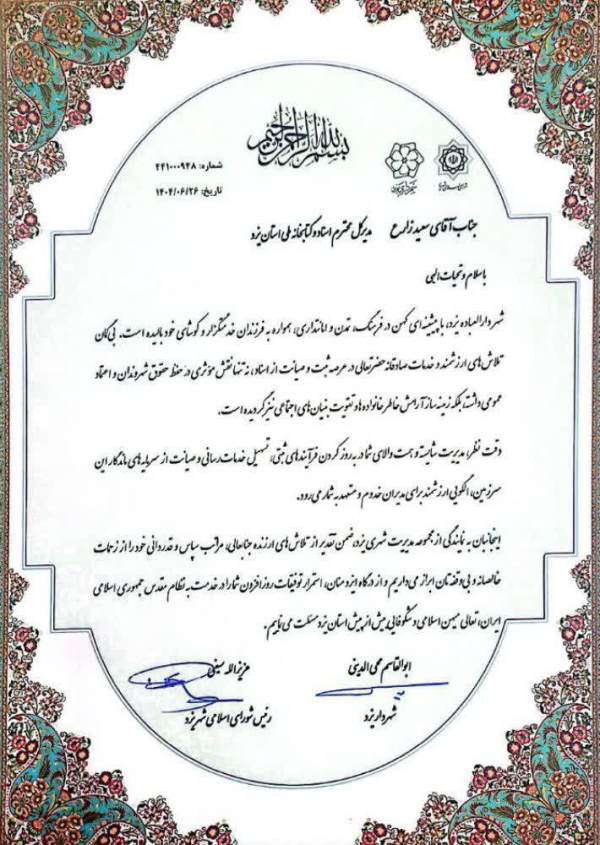 بسم الله الرحمن الرحیم
شماره: ۴۴۱۰۰۰۹۴۸
تاریخ: ۱۴۰۴/۰۶/۲۶
جناب آقای سعید زارع مدیرکل محترم اسناد و کتابخانه ملی استان یزد
با سلام و تحیات الهی
شهر دارالعباده یزد، با پیشینه‌ای کهن در فرهنگ، تمدن و امانتداری، همواره به فرزندان خدمتگزار و کوشای خود بالیده است. بی‌گمان
تلاش‌های ارزشمند و خدمات صادقانه حضرتعالی در عرصه ثبت و صیانت از اسناد، نه تنها نقش مؤثری در حفظ حقوق شهروندان و اعتماد
عمومی داشته، بلکه زمینه‌ساز آرامش خاطر خانواده‌ها و تقویت بنیان‌های اجتماعی نیز گردیده است.
دقت نظر، مدیریت شایسته و همت والای شما در به روز کردن فرآیندهای ثبتی، تسهیل خدمات رسانی و صیانت از سرمایه‌های ماندگار این
سرزمین، الگویی ارزشمند برای مدیران خدوم و متعهد به شمار می‌رود.
اینجانبان به نمایندگی از مجموعه مدیریت شهری یزد، ضمن تقدیر از تلاش‌های ارزنده جنابعالی، مراتب سپاس و قدردانی خود را از زحمات
خالصانه و بی‌وقفه‌تان ابراز می‌داریم و از درگاه ایزد منان، استمرار توفیقات روزافزون شما را در خدمت به نظام مقدس جمهوری اسلامی
ایران، تعالی میهن اسلامی و شکوفایی بیش از پیش استان یزد مسئلت می‌نماییم.
ابوالقاسم محی‌الدینی عزیزالله سیفی
شهردار یزد رئیس شورای اسلامی شهر یزد